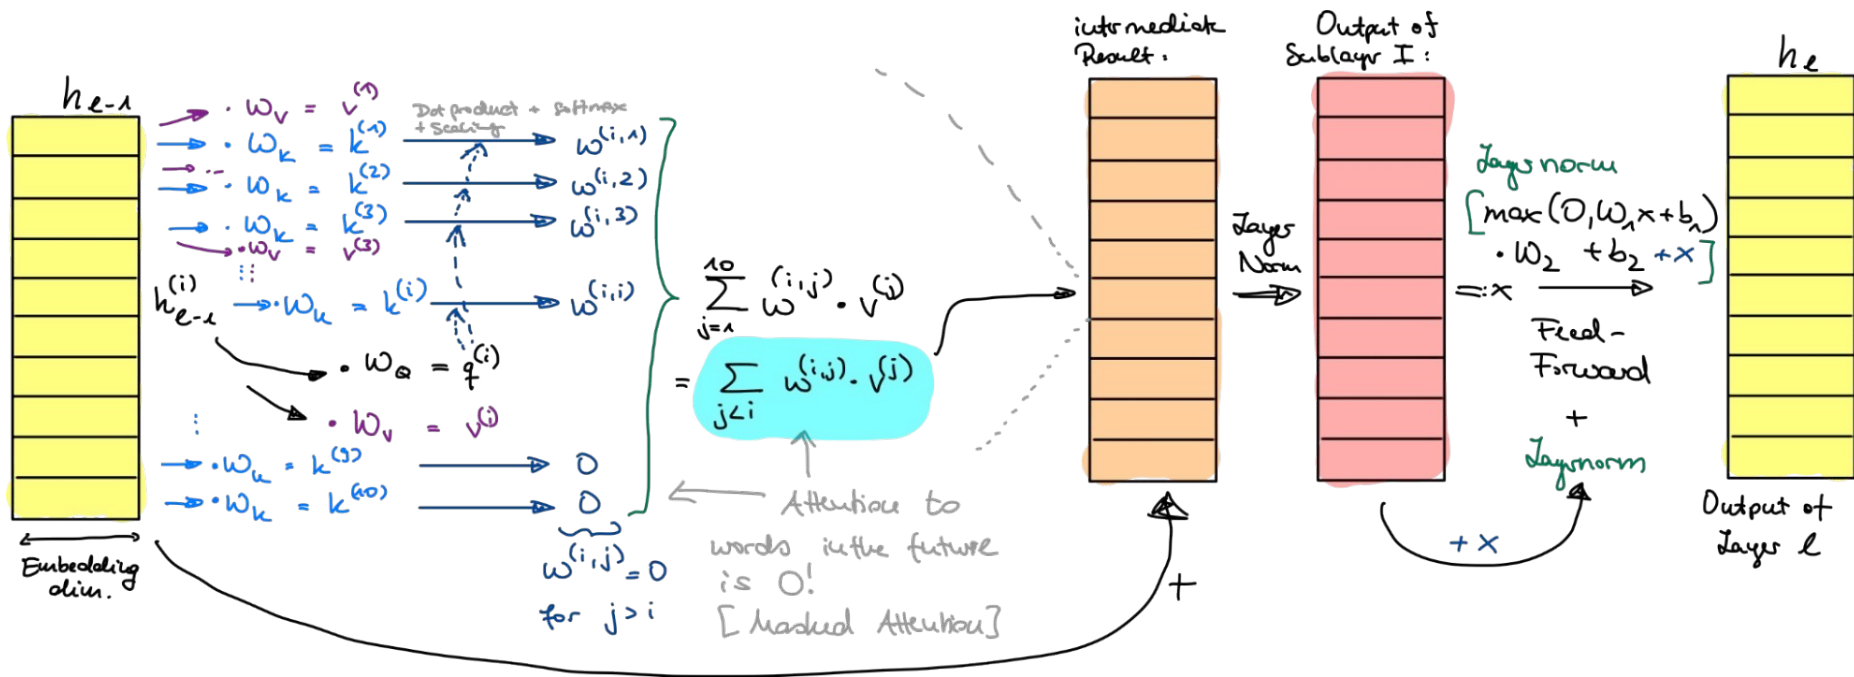 h_{e-1}
· W_V = v^{(1)}
· W_k = k^{(1)}
...
· W_k = k^{(2)}
· W_k = k^{(3)}
· W_V = v^{(3)}
h_{e-1}^{(i)}
· W_k = k^{(i)}
· W_Q = q^{(i)}
· W_V = v^{(i)}
· W_k = k^{(9)}
· W_k = k^{(10)}
Embedding
dim.
Dot product + softmax
+ Scaling
w^{(i,1)}
w^{(i,2)}
w^{(i,3)}
w^{(i,i)}
0
0
w^{(i,j)} = 0
for j > i
\sum_{j=1}^{10} w^{(i,j)} · v^{(j)}
= \sum_{j<i} w^{(i,j)} · v^{(j)}
Attention to
words in the future
is 0!
[Masked Attention]
intermediate
Result:
+
Layer
Norm
Output of
Sublayer I:
=: x
Layernorm
[max(0, W_1 x + b_1)
· W_2 + b_2 + x]
Feed-
Forward
+
Layernorm
+ x
h_e
Output of
Layer l